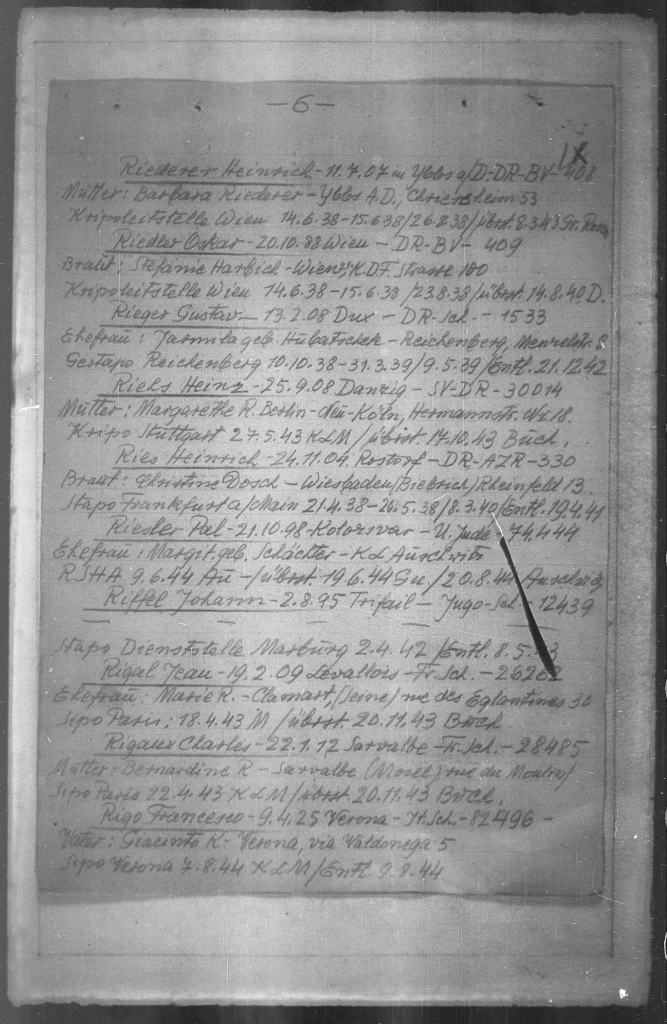 — 6 —
IX
Riederer Heinrich - 11.7.07 in Ybbs a/D - DR-BV - 408
Mutter: Barbara Riederer - Ybbs A.D., Chriesheim 53
Kripoleitstelle Wien 14.6.38 - 15.6.38/26.8.38/überst. 8.3.43 Gr. Rosen
Riedler Oskar - 20.10.88 Wien - DR-BV - 409
Braut: Stefanie Harbich - Wien, A.D.F. Strasse 100
Kripoleitstelle Wien 14.6.38 - 15.6.38/23.8.38/überst. 14.8.40 D.
Rieger Gustav - 13.2.08 Dux - DR-Sch. - 1533
Ehefrau: Jarmila geb. Hubatschek - Reichenberg,
Gestapo Reichenberg 10.10.38 - 31.3.39/9.5.39/Entl. 21.12.42
Riels Heinz - 25.9.08 Danzig - SV-DR - 30014
Mutter: Margarethe R. Berlin-Neu-Köln, Hermannstr. Nr. 18.
Kripo Stuttgart 27.5.43 KLM/überst. 17.10.43 Buch.
Ries Heinrich - 24.11.04 Rostorf - DR-AZR - 330
Braut: Christine Dosch - Wiesbaden/Biebrich/Rheinfeld 13.
Stapo Frankfurt a/Main 21.4.38 - 26.5.38/8.3.40/Entl. 19.4.41
Riesler Pal - 21.10.98 Kolozsvar - U. Jude - 74444
Ehefrau: Margit geb. Schächter - KL Auschwitz
RSHA 9.6.44 Au - /überst. 19.6.44 Gu/20.8.44 Auschwitz
Riffel Johann - 2.8.95 Trifail - Jugo-Sch. - 12439
Stapo Dienststelle Marburg 2.4.42/Entl. 8.5.
Rigal Jean - 19.2.09 Levallois - Fr. Sch. - 26262
Ehefrau: Marie R. - Clamart, (Seine) rue des Eglantines 30
Sipo Paris: 18.4.43 M/überst. 20.11.43 Buch
Rigaux Charles - 22.1.12 Sarvalbe - Fr. Sch. - 28485
Mutter: Bernardine R - Sarvalbe (Mosel) rue du
Sipo Paris 22.4.43 KLM/überst. 20.11.43 Buch.
Rigo Francesco - 9.4.25 Verona - It. Sch. - 82496 -
Vater: Giacinto R - Verona, via Valdonega 5
Sipo Verona 7.8.44 KLM/Entl. 9.8.44